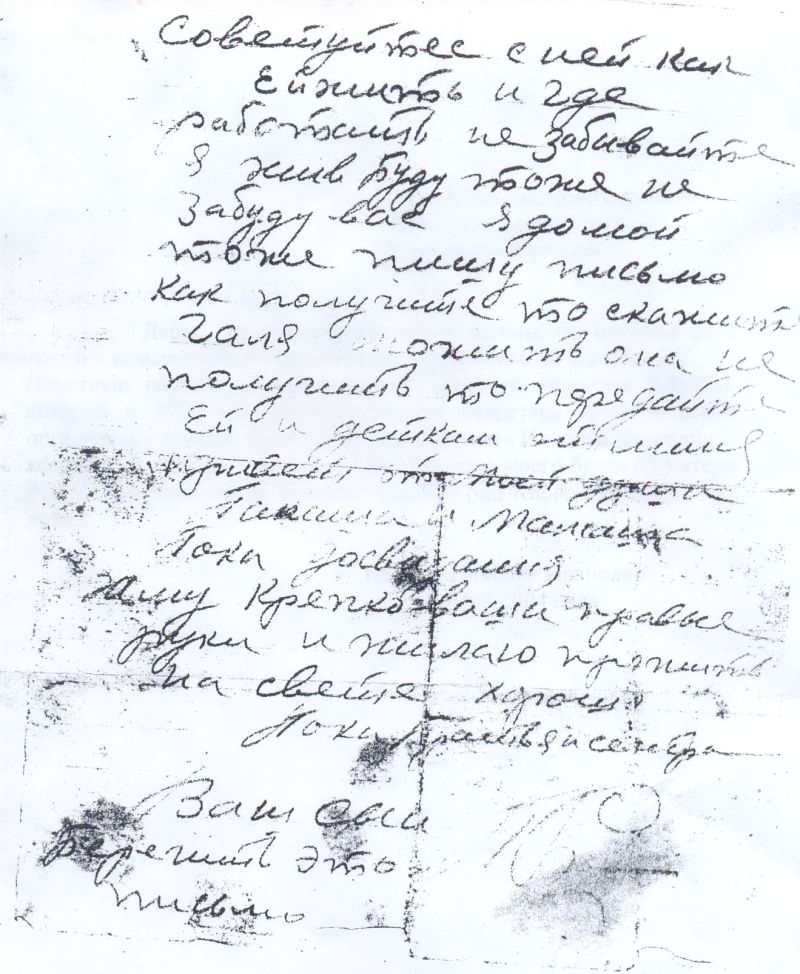 Советуйтес с ней как
Ей жить и где
работить не забывайте
Я жив буду тоже не
забуду вас Я домой
тоже пишу письмо
как получите то скажите
Галя можить она не
получить то передайте
Ей и деткам
от
Папаша и Мамаша
Пока досвидания
Жму крепко ваши правые
руки и жилаю прожить
на свете хорошо
Пока братья и сестра
Ваш сын
Берегить это
письмо